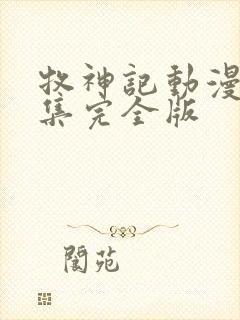 牧神記動漫
集完全版
閬苑